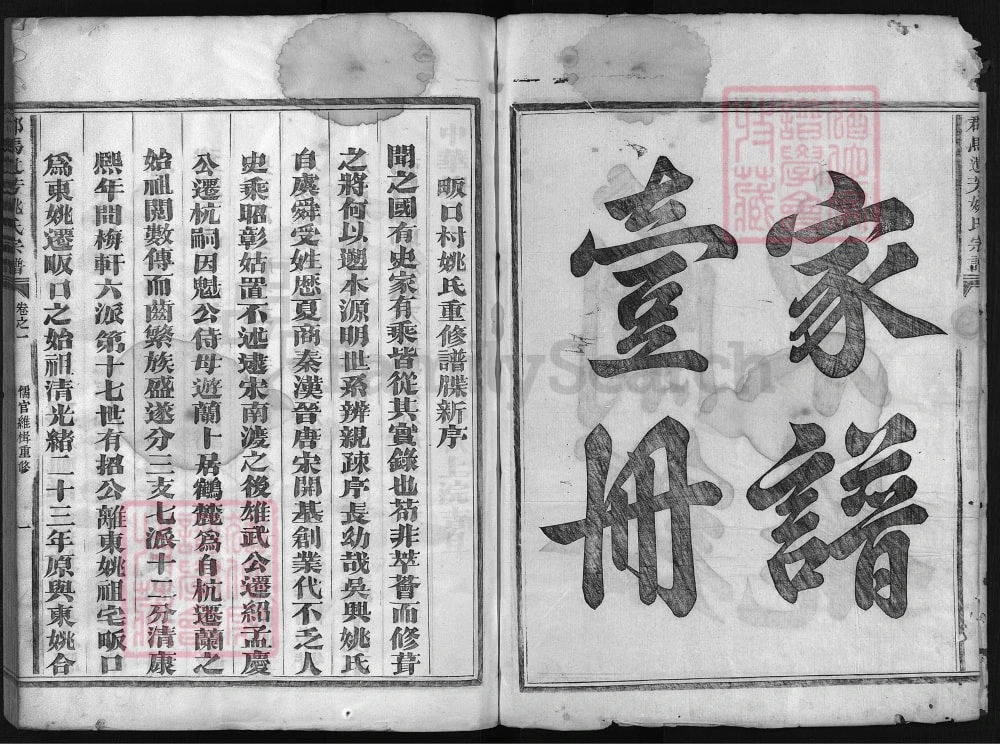 家譜
壹冊
畈口村姚氏重修譜牒新序
聞之國有史家有乘皆從其實錄也苟非萃薈而修葺
之將何以遡本源明世系辨親疎序長幼哉吳興姚氏
自虞舜受姓歷夏商秦漢晉唐宋開基創業代不乏人
史乘昭彰姑置不述逮宋南渡之後雄武公遷紹孟慶
公遷杭嗣因魁公侍母遊蘭卜居鶴麓為自杭遷蘭之
始祖閱數傳而齒繁族盛遂分三支七派十二分清康
熙年間梅軒六派第十七世有招公離東姚祖宅畈口
為東姚遷畈口之始祖清光緒二十三年原與東姚合
姚氏宗譜
卷之一
儒官維楫重修
一
FamilySearch